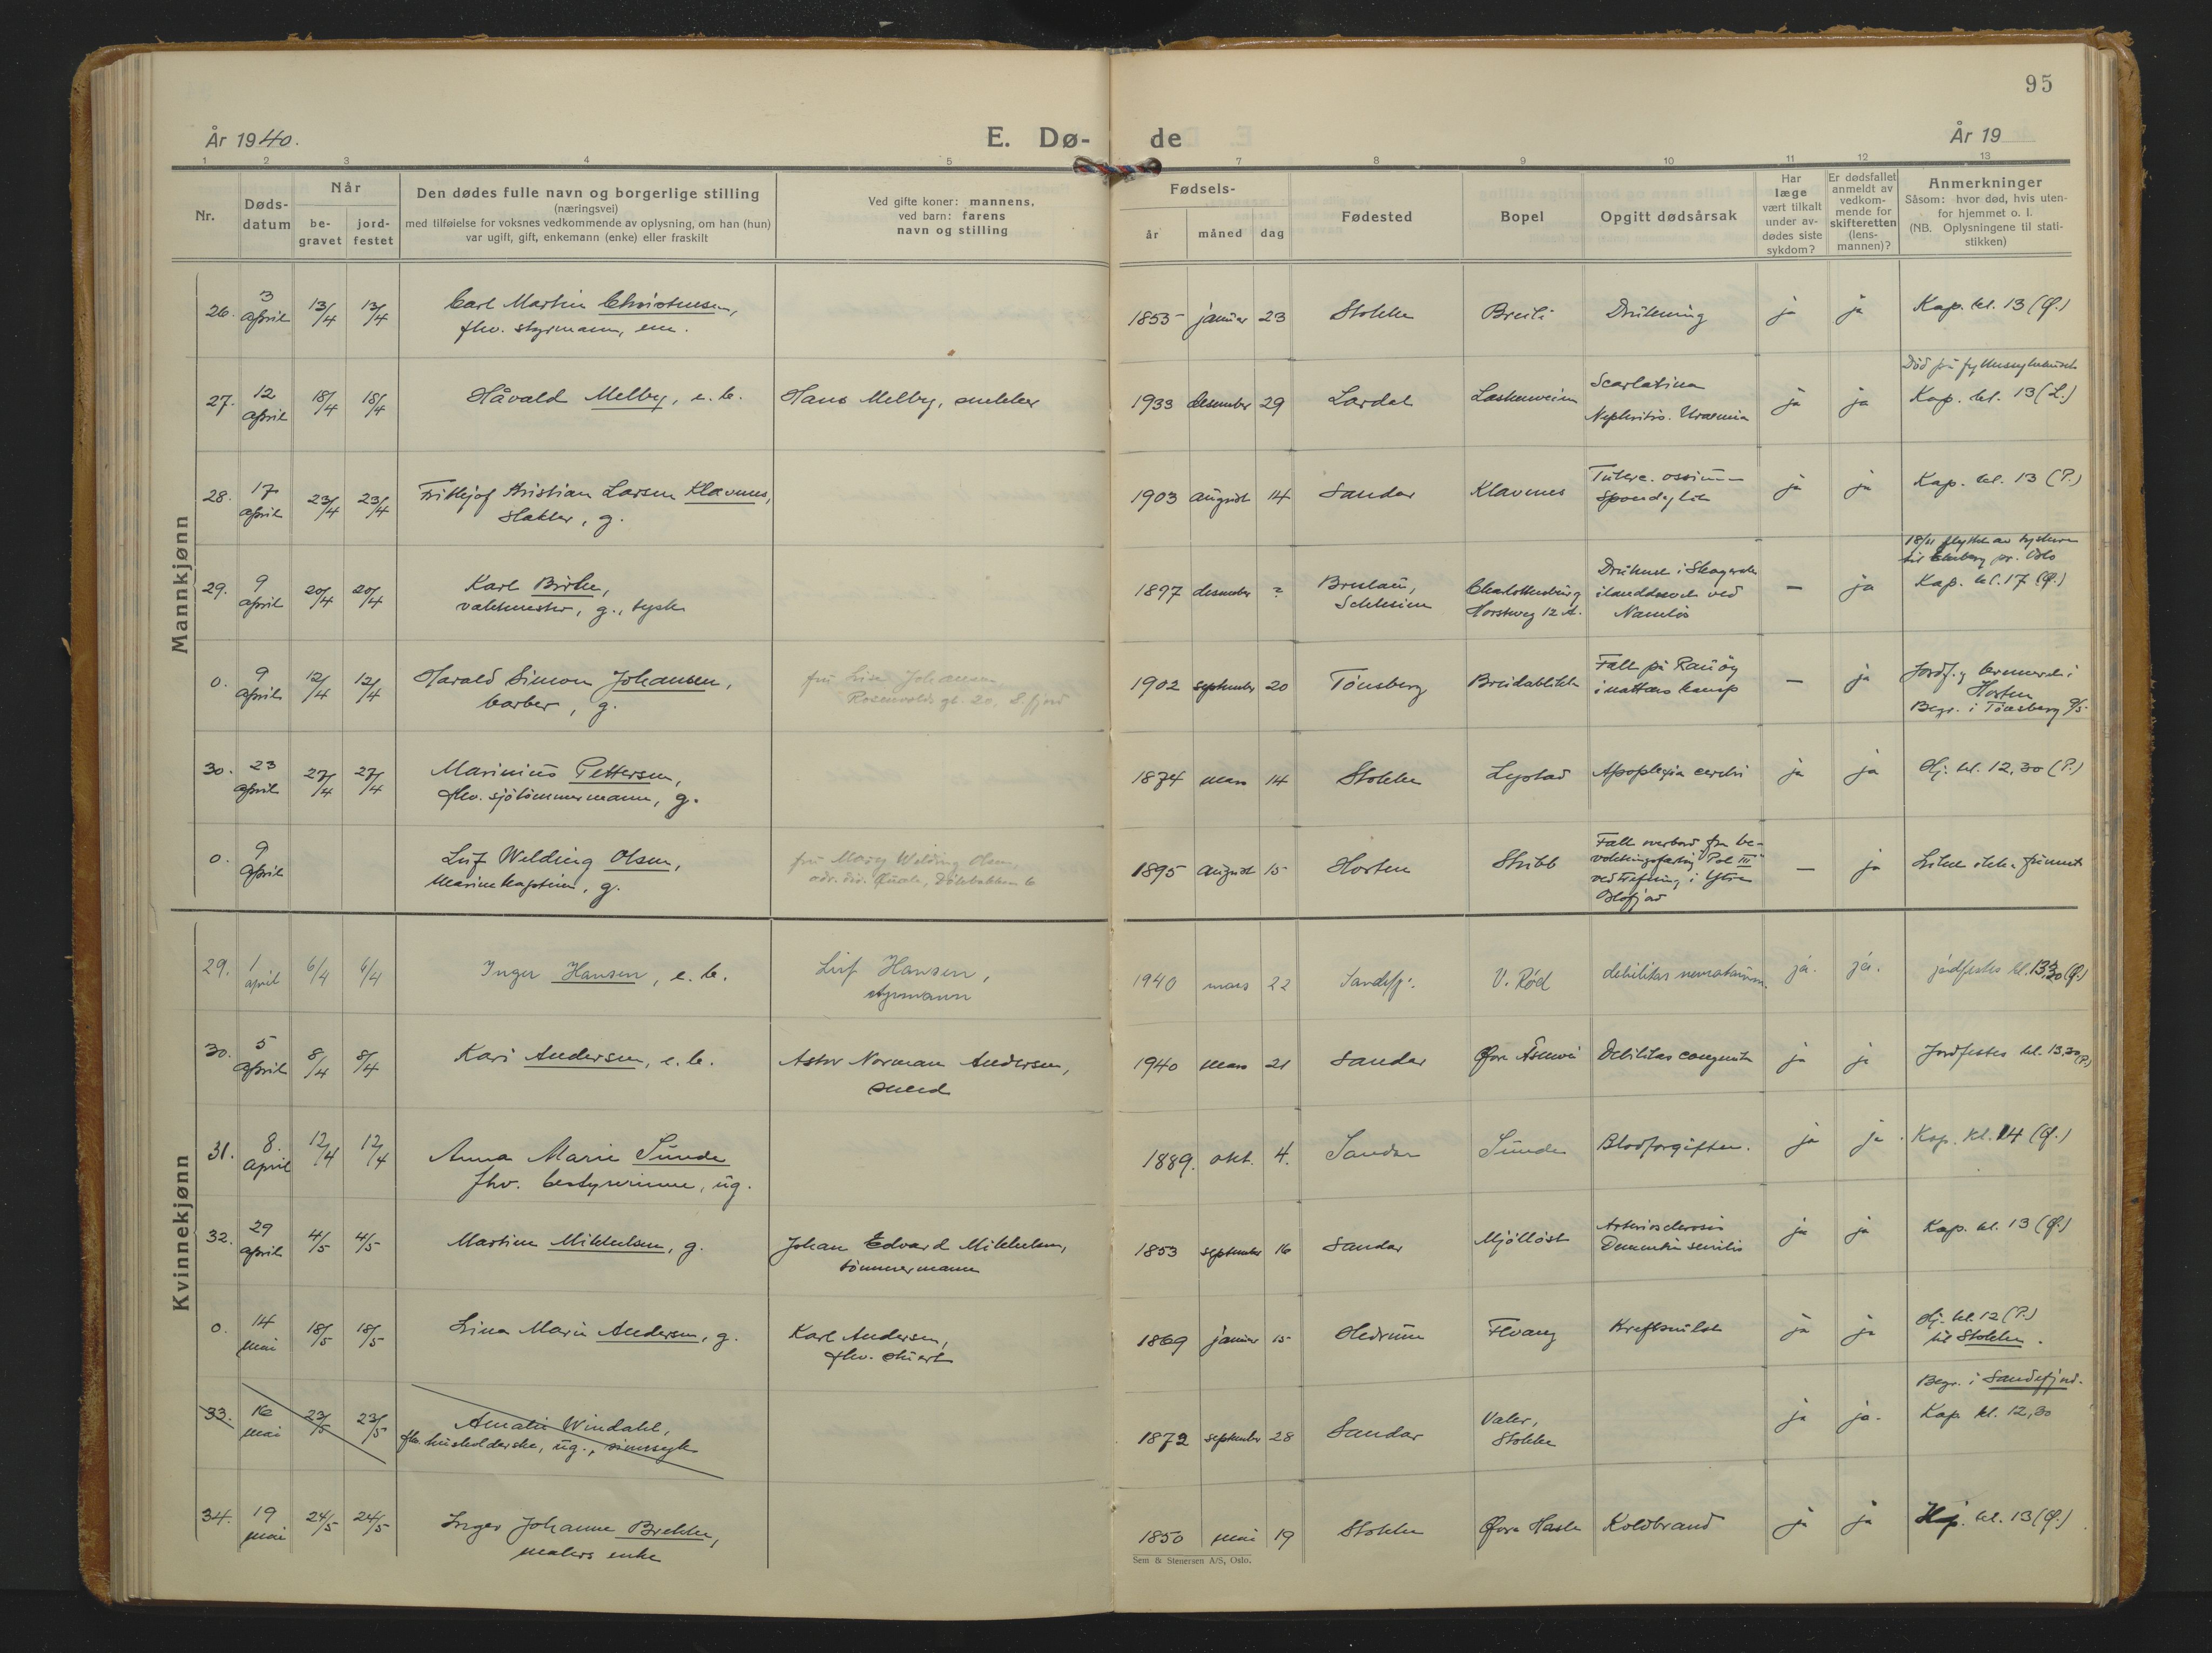 95
År 1940.
E. Dø- de
År 19
1 2 3 4 5 7 8 9 10 11 12 13
Nr.
Døds-
datum
Når
be-
gravet
jord-
festet
Den dødes fulle navn og borgerlige stilling
(næringsvei)
med tilføielse for voksnes vedkommende av oplysning, om han (hun)
var ugift, gift, enkemann (enke) eller fraskilt
Ved gifte koner: mannens,
ved barn: farens
navn og stilling
Fødsels-
år måned dag
Fødested
Bopel
Opgitt dødsårsak
Har
læge
vært tilkalt
under av-
dødes siste
sykdom?
Er dødsfallet
anmeldt av
vedkom-
mende for
skifteretten
(lens-
mannen)?
Anmerkninger
Såsom: hvor død, hvis uten-
for hjemmet o. l.
(NB. Oplysningene til stati-
stikken)
Mannkjønn
26. 3 april 13/4 13/4 Carl Martin Christensen,
fhv. styrmann, em.
1853 januar 23 Stokke Breili Drukning ja ja Kap. kl. 13 (Q.)
27. 12 april 18/4 18/4 Håvald Melby, e. b. Hans Melby, snekker
1933 desember 29 Lardal Laskenveien Scarlatina
Nephritis. Uraemia ja ja Død på fylkessykehuset
Kap. kl. 13 (L.)
28. 17 april 23/4 23/4 Frithjof Kristian Larsen Klavenes,
slakter, g.
1903 august 14 Sandar Klavenes Tuberc. ossium
Spondylit ja ja Kap. kl. 13 (P.)
29. 9 april 20/4 20/4 Karl Birke,
vaktmester, g., tysk
1897 desember ? Breslau,
Schlesien Charlottenburg
Horstweg 12 A. Druknet i Skagerak
ilanddrevet ved
Namløs — ja 18/11 flyttet av tyskerne
til Ekeberg pr. Oslo
Kap. kl. 17 (Q.)
0. 9 april 12/4 12/4 Harald Simon Johansen,
barber, g. fru Lise Johansen,
Rosenvolds gt. 20, S.fjord
1902 september 20 Tönsberg Breidablikk Falt på Rauöy
i nattens kamp — ja Jordf. og kremeret i
Horten
Begr. i Tönsberg 9/5
30. 23 april 27/4 27/4 Marinius Pettersen,
fhv. sjötömmermann, g.
1874 mars 14 Stokke Lystad Apoplexia cerebri ja ja Hj. kl. 12,30 (P.)
0. 9 april Leif Welding Olsen,
Marinekaptein, g. fru Mary Welding Olsen,
1895 august 15 Horten Skibb Falt overbord fra be-
voktningsfartöy "Pol III"
ved trefning i Ytre
Oslofjord — ja Liket ikke funnet
Kvinnekjønn
29. 1 april 6/4 6/4 Inger Hansen, e. b. Leif Hansen,
styrmann
1940 mars 22 Sandefj. V. Rød debilitas neonatorum. ja. ja. jordfestes kl. 13.30 (Q.)
30. 5 april 8/4 8/4 Kari Andersen, e. b. Astor Norman Andersen,
smed
1940 mars 21 Sandar Øvre Åsenvei Debilitas congenita ja ja Jordfestes kl. 13.30 (P.)
31. 8. april 12/4 12/4 Anna Marie Sunde
fhv. bestyrerinne, ug.
1889. okt. 4. Sandar Sunde Blodforgiften. ja ja. Kap. kl. 14 (Q.)
32. 29 april 4/5 4/5 Martine Mikkelsen, g. Johan Edvard Mikkelsen,
tömmermann
1853 september 16 Sandar Mjöllöst Arteriosclerosis
Dementia senilis ja ja Kap. kl. 13 (Q.)
0. 14 mai 18/5 18/5 Lina Marie Andersen, g. Karl Andersen,
fhv. stuert
1869 januar 15 Hedrum Fevang Kreftsvulst ja ja Hj. kl. 12 (P.)
til Stokke.
33. 16 mai 23/5 23/5 Amalie Windahl,
fhv. husholderske, ug., sinnssyk
1872 september 28 Sandar Valer,
Stokke ja ja. Begr. i Sandefjord.
Kap. kl. 12,30
34. 19 mai 24/5 24/5 Inger Johanne Brekke,
malers enke
1850 mai 19 Stokke Øvre Hasle Koldbrand ja ja Hj. kl. 13 (Q.)
Sem & Stenersen A/S, Oslo.